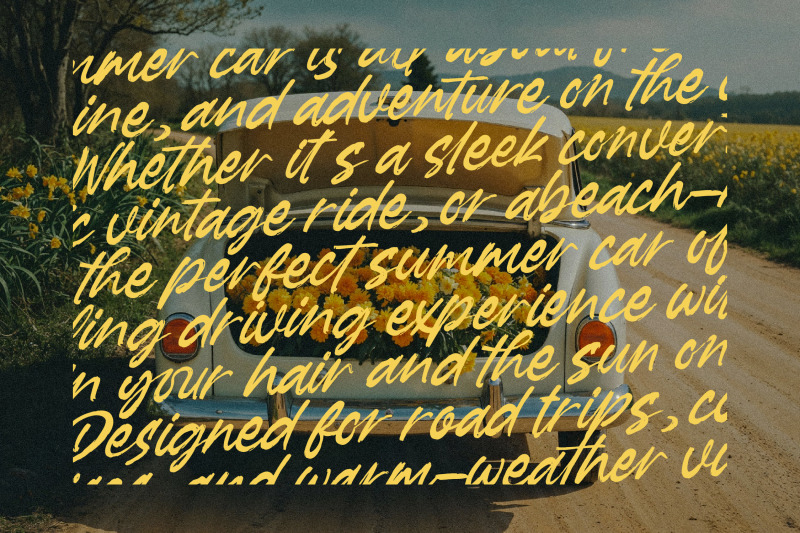 mmer car is all about
ine, and adventure on the
Whether it's a sleek conver
c vintage ride, or abeach-
the perfect summer car of
ling driving experience wi
n your hair and the sun on
Designed for road trips, co
and warm-weather